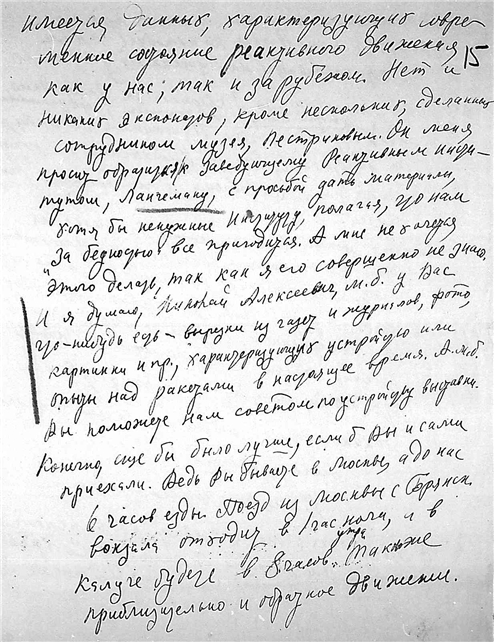 имеется данных, характеризующих совре-
менное состояние реактивного движения,
как у нас, так и за рубежом. Нет и 15
никаких экспонатов, кроме нескольких, сделанных
сотрудником музея, Пестриковым. Он меня
просит обратиться к Заведующему Реактивным Инсти-
тутом, Лангеману, с просьбой дать материалы,
хотя бы ненужные Институту, полагая, что нам
"За бедностью все пригодится. А мне не хочется
этого делать, так как я его совершенно не знаю.
И я думаю, Николай Алексеевич, м.б. у Вас
что-нибудь есть – вырезки из газет и журналов, фото,
картинки и пр., характеризующих устройство или
опыты над ракетами в настоящее время. А м.б.
Вы поможете нам советом по устройству выставки.
Конечно, еще бы было лучше, если б Вы и сами
приехали. Ведь Вы бываете в Москве, а до нас
6 часов езды. Поезд из Москвы с Брянск.
вокзала отходит в 1 час ночи, и в
Калуге будете в 8 часов утра. Также
приблизительно и обратное движение.